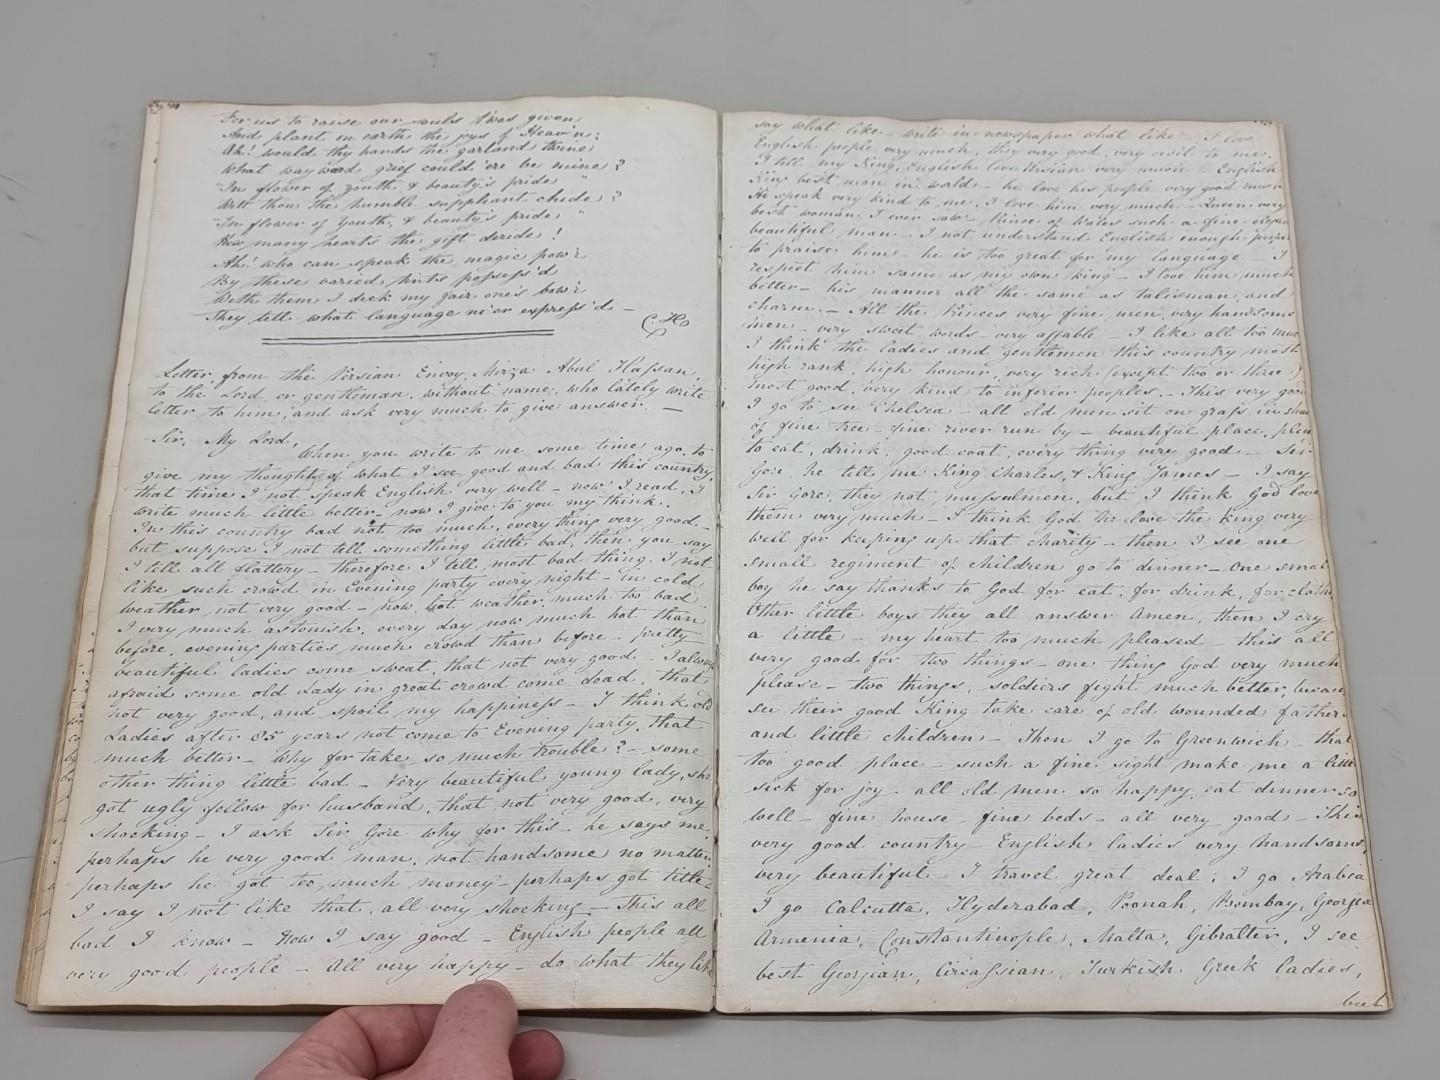 For us to raise our souls t'was given,
And plant on earth the joys of Heav'n;
Ah! would thy hands the garland twine
What wayward grief could e're be mine?
"In flower of youth, & beauty's pride"
Wilt thou the humble suppliant chide?
"In flower of Youth, & beauty's pride"
How many hearts the gift deride!
Ah! who can speak the magic pow'r
By these varied tints possess'd
With them I deck my fair one's bow'r
They tell what language ne'er express'd —
C. H.
Letter from the Persian Envoy, Mirza Abul Hassan,
to the Lord or gentleman, without name, who lately write
letter to him, and ask very much to give answer. —
Sir, My Lord,
When you write to me some time ago, to
give my thoughts of what I see, good and bad this country,
that time I not speak English very well – now I read, I
write much little better – now I give to you my think.
In this country bad not too much, every thing very good –
but suppose I not tell something little bad, then you say
I tell all flattery – therefore I tell most bad thing. I not
like such crowd in Evening party every night – in cold
weather not very good – now, hot weather, much too bad.
I very much astonish, every day now much hot than
before, evening parties much crowd than before – pretty
beautiful ladies come sweat, that not very good – I always
afraid some old Lady in great crowd come dead, that
not very good, and spoil my happiness – I think old
Ladies after 85 years not come to Evening party, that
much better – Why for take so much trouble? – some
other thing little bad – Very beautiful young lady, she
got ugly fellow for husband, that not very good, very
shocking – I ask Sir Gore why for this – he says me,
perhaps he very good man, not handsome no matter,
perhaps he got too much money – perhaps got title –
I say I not like that, all very shocking – This all
bad I know – Now I say good – English people all
very good people – All very happy – do what they like
say what like – write in newspaper what like – I love
English people very much, they very good, very civil to me.
I tell my King, English love Persian very much – English
King best man in world – he love his people very good much
He speak very kind to me, I love him very much – Queen very
best woman I ever saw – Prince of Wales such a fine elegan
beautiful man – I not understand English enough proper
to praise him – he is too great for my language – I
respect him same as my own King – I love him much
better – his manner all the same as talisman and
charm. – All the Princes very fine men, very handsome
men – very sweet words – very affable – I like all too much
I think the ladies and gentlemen this country most
high rank, high honour, very rich (except two or three)
most good, very kind to inferior peoples. – This very good
I go to see Chelsea – all old men sit on grass in shade
of fine tree – fine river run by – beautiful place, plen
to eat, drink, good coat, every thing very good – Sir
Gore, he tell me King Charles, & King James – I say
Sir Gore, they not mussulmen, but I think God love
them very much – I think God he love the King very
well for keeping up that charity – then I see one
small regiment of children go to dinner – one small
boy he say thanks to God for eat, for drink, for cloths
Other little boys they all answer Amen, then I cry
a little – my heart too much pleased – this all
very good for two things – one thing God very much
please – two things, soldiers fight much better, becau
see their good King take care of old wounded fathers
and little children – Then I go to Greenwich – that
too good place – such a fine sight make me a little
sick for joy – all old men so happy, eat dinner so
well – fine house – fine beds – all very good – This
very good country – English ladies very handsome,
very beautiful – I travel great deal; I go Arabia
I go Calcutta, Hyderabad, Poonah, Bombay, Georgia
Armenia, Constantinople, Malta, Gibralter, I see
best Georgian, Circassian, Turkish, Greek ladies,
but